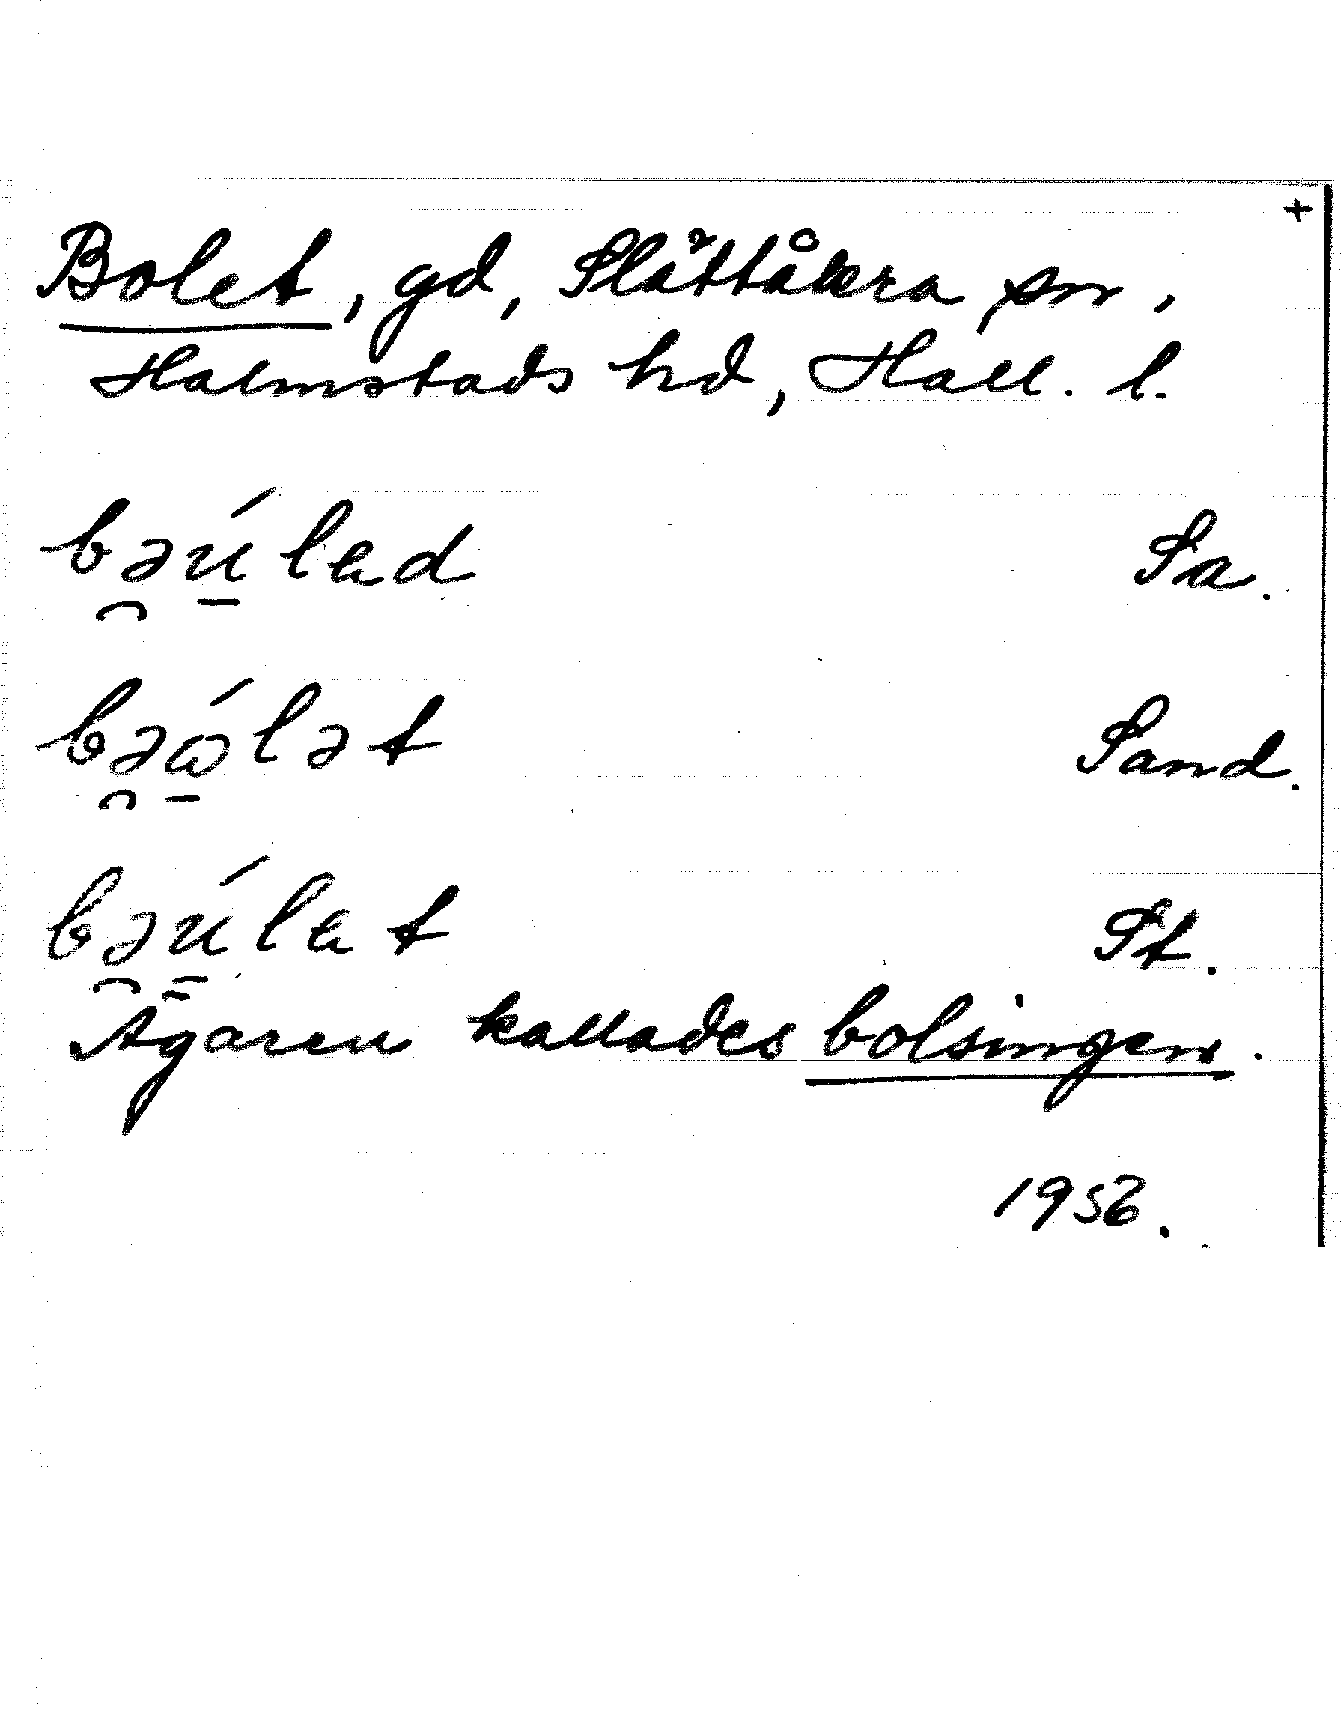 +
Bolet, gd, Slättåkra sn,
Halmstads hd, Hall. l.
bə̯ú̱lɐd Sa.
bə̯ɷ̱́lət Sand.
bə̯ú̱lɐt St.
Ägaren kallades bolsingen.
1956.